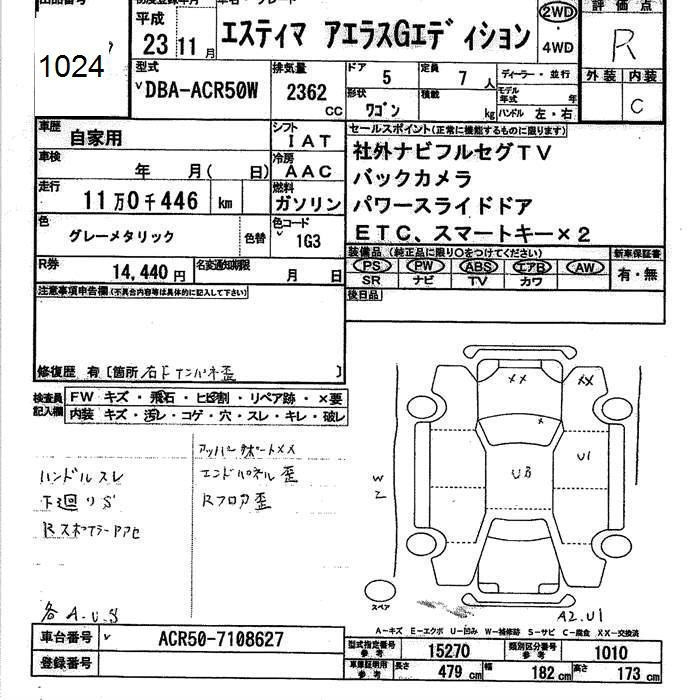 1024
初度登録年月
平成
23 11 月
エスティマ アエラスGエディション
2WD
4WD
評価点
R
外装 内装
C
型式
DBA-ACR50W
排気量
2362
CC
ドア 5
定員 7 人
ディーラー・並行
形状
ワゴン
積載
kg
モデル年式 年
ハンドル 左・右
車歴
自家用
シフト
IAT
車検
年 月( 日)
冷房
AAC
走行
11万0千446 km
燃料
ガソリン
色
グレーメタリック
色替
色コード
1G3
R券
14,440 円
名変通知期限
月 日
セールスポイント(正常に機能するものに限ります)
社外ナビフルセグTV
バックカメラ
パワースライドドア
ETC、スマートキー×2
装備品(純正品に限り○をつけてください)
新車保証書
PS PW ABS エアB AW
SR ナビ TV カワ
有・無
後日品
注意事項申告欄(不具合内容等は具体的に記入して下さい)
修復歴 有 [箇所 右Fインパネ歪 ]
検査員記入欄
FW キズ・飛石・ヒビ割・リペア跡・×要
内装 キズ・汚レ・コゲ・穴・スレ・キレ・破レ
アッパーサポートXX
ハンドルスレ
エンドパネル歪
下廻りS
Rフロア歪
RスポイラーAアセ
各A.U.S
XX
XX
x
U1
UB
W2
スペア
A2.U1
A-キズ E-エクボ U-凹み W-補修跡 S-サビ C-腐食 XX-交換済
車台番号
ACR50-7108627
登録番号
型式指定番号
参考
15270
類別区分番号
参考
1010
車庫証明用
参考
長さ 479 cm
幅 182 cm
高さ 173 cm